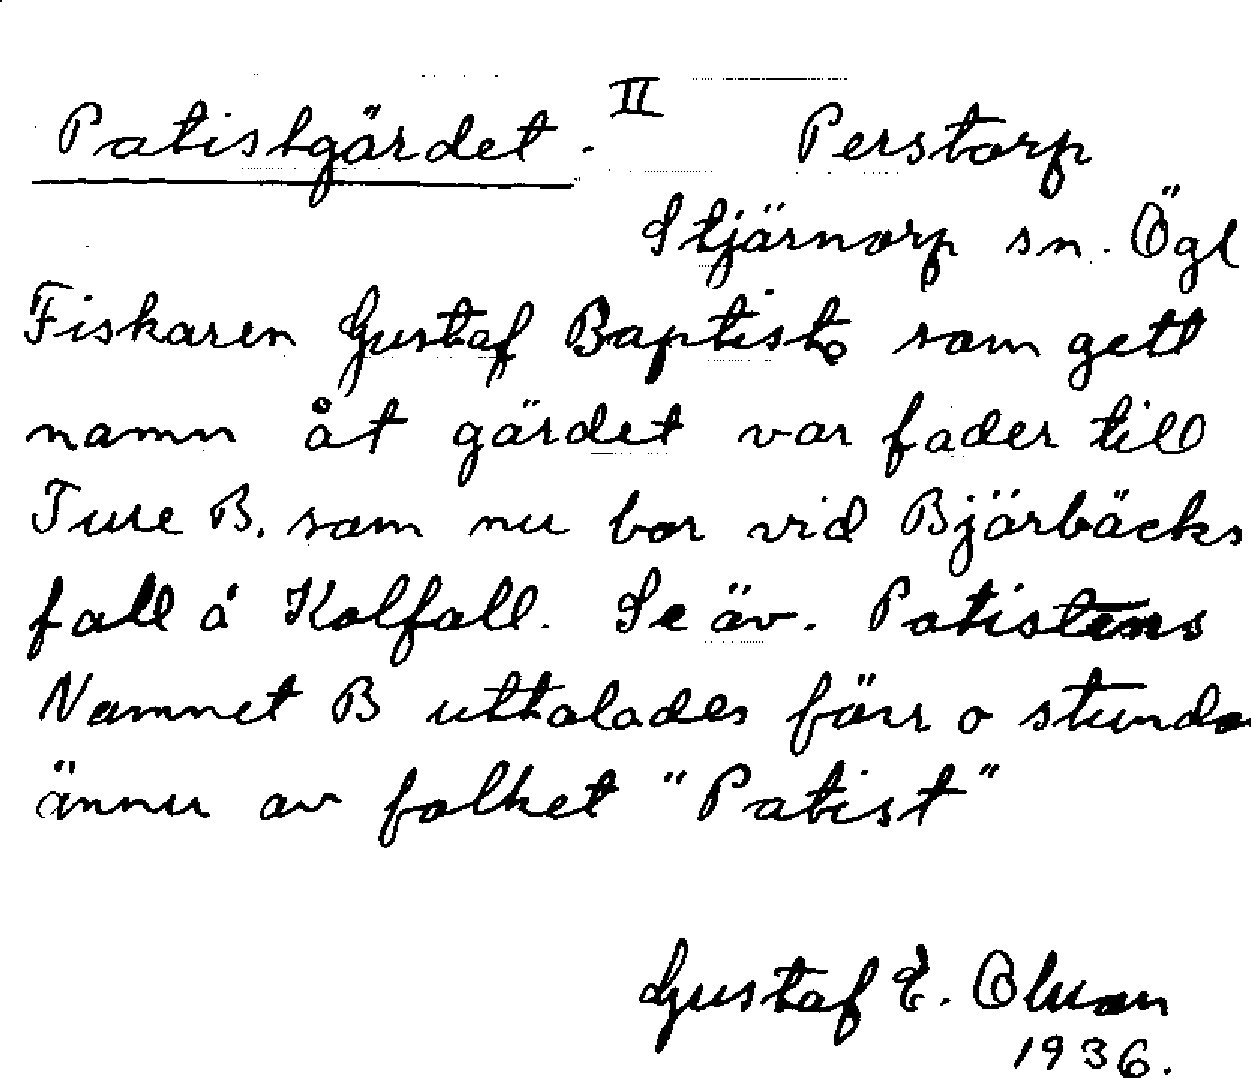 Patistgärdet. II Perstorp
Stjärnorp sn. Ögl
Fiskaren Gustaf Baptist, som gett
namn åt gärdet var fader till
Ture B. som nu bor vid Bjärbäcks
fall å Kolfall. Se äv. Patistens
Namnet B uttalades förr o stundo
ännu av folket "Patist"
Gustaf E.
1936.